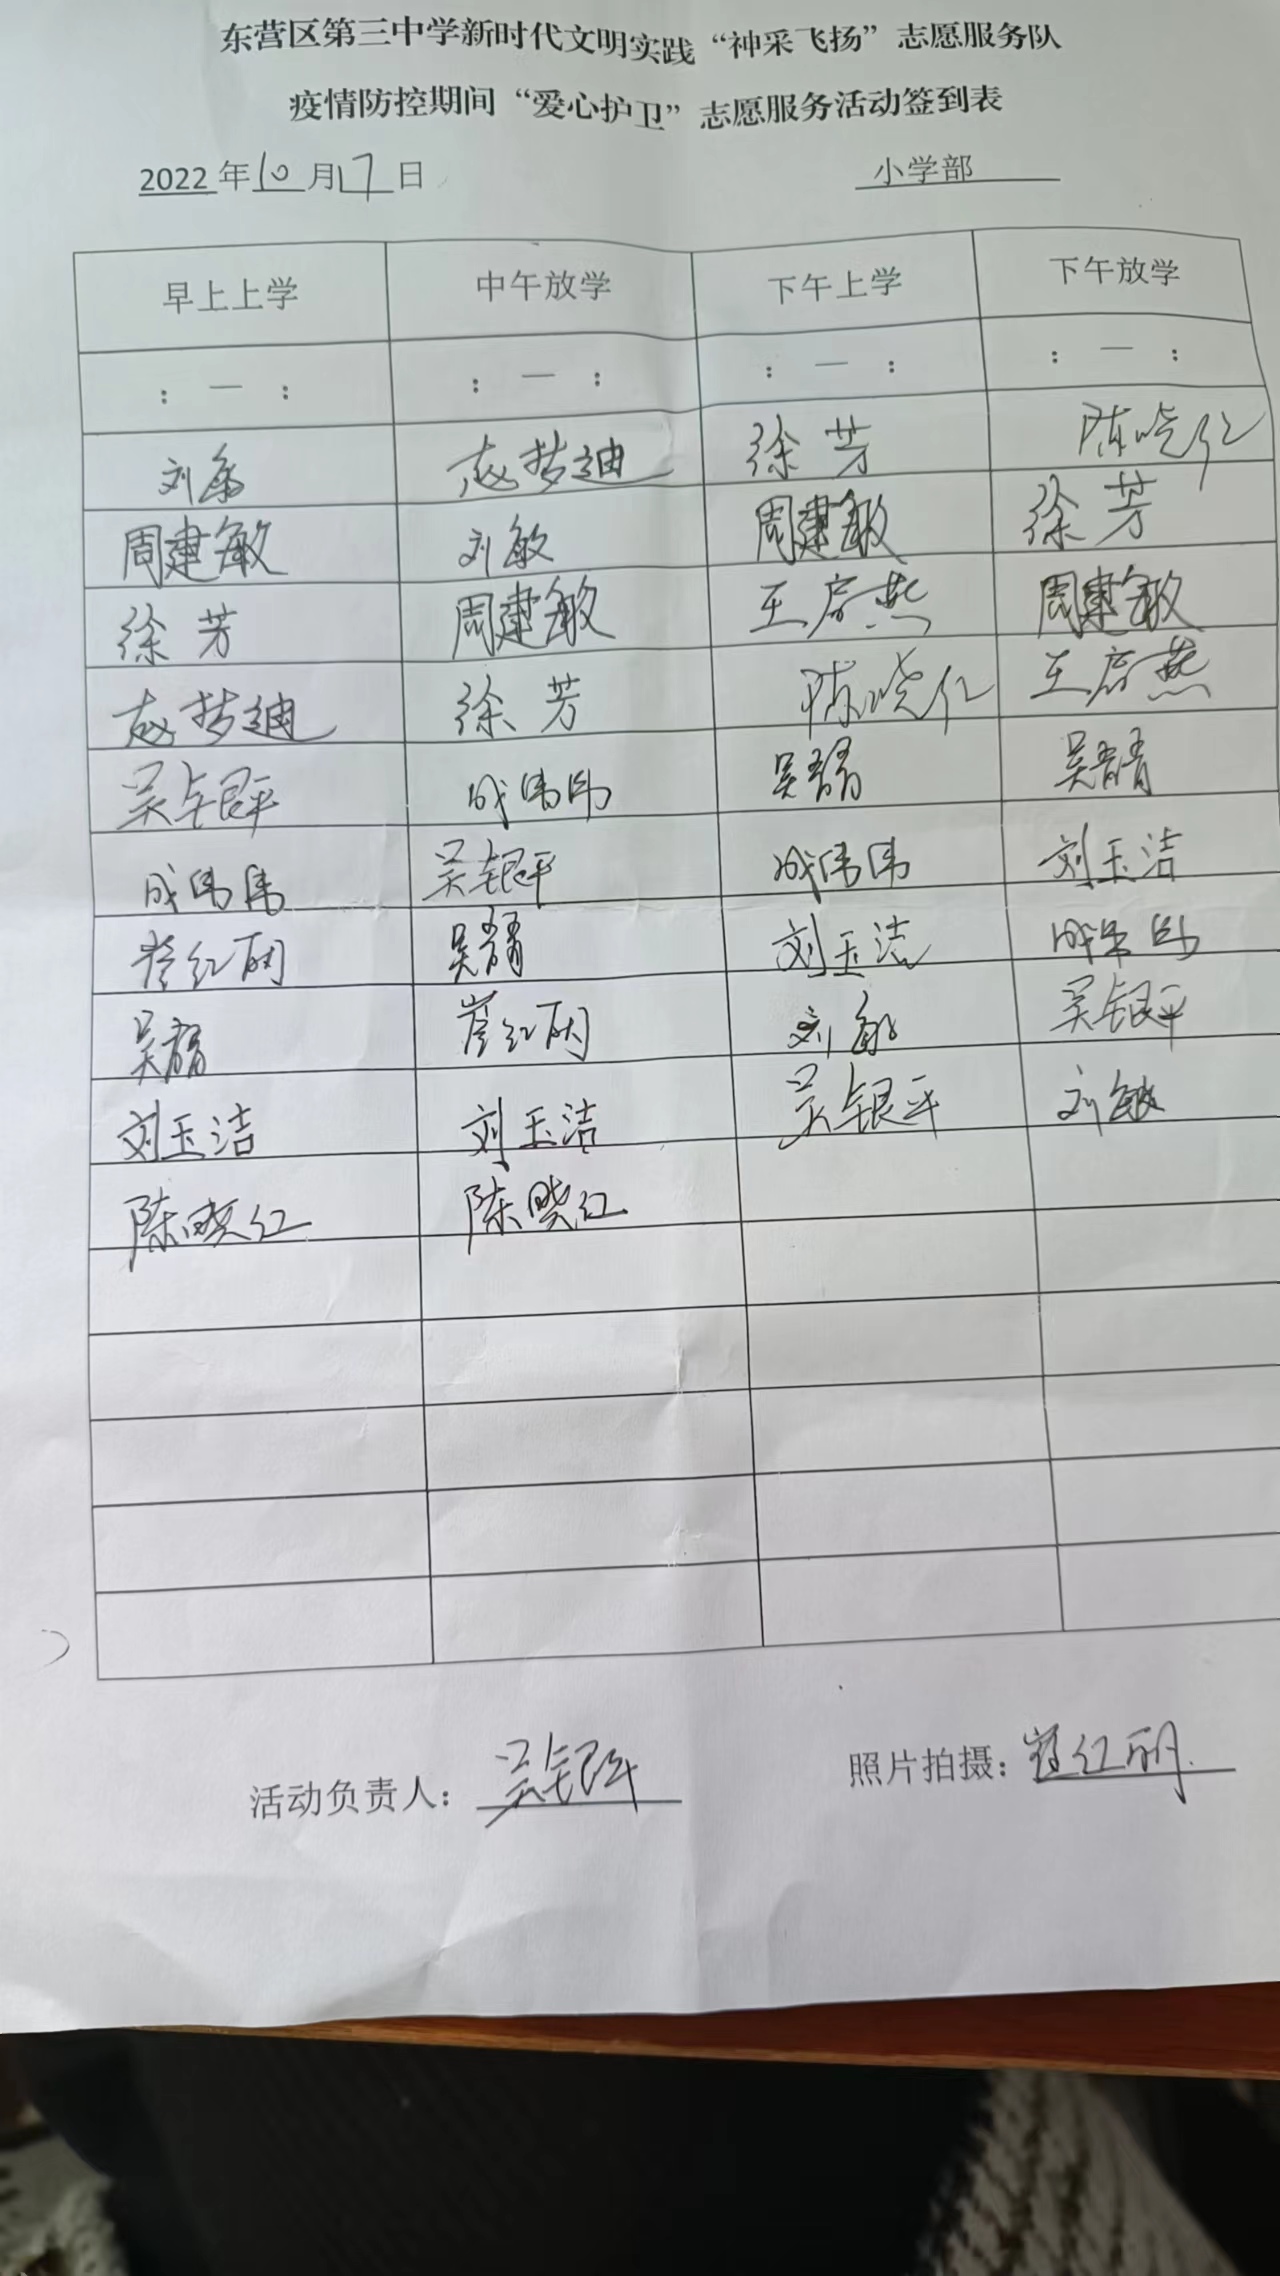 东营区第三中学新时代文明实践“神采飞扬”志愿服务队
疫情防控期间“爱心护卫”志愿服务活动签到表
2022 年 10 月 17 日 小学部
早上上学 中午放学 下午上学 下午放学
: — : : — : : — : : — :
刘敏 赵梦迪 徐芳 陈晓红
周建敏 刘敏 周建敏 徐芳
徐芳 周建敏 王彦燕 周建敏
赵梦迪 徐芳 陈晓红 王彦燕
吴银平 成伟伟 吴青青 吴青青
成伟伟 吴银平 成伟伟 刘玉洁
崔红丽 吴青青 刘玉洁 成伟伟
吴青青 崔红丽 刘敏 吴银平
刘玉洁 刘玉洁 吴银平 刘敏
陈晓红 陈晓红
活动负责人: 吴银平 照片拍摄: 崔红丽